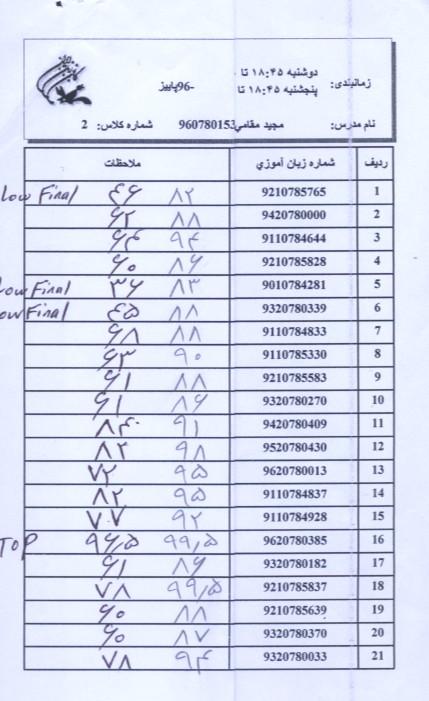 زمانبندی: دوشنبه ۱۸:۴۵ تا -96پاییز
پنجشنبه ۱۸:۴۵ تا
نام مدرس: مجید مقامي960780153 شماره کلاس: 2
ردیف شماره زبان آموزي ملاحظات
1 9210785765 ۸۲ ۴۶ Low Final
2 9420780000 ۸۸ ۶۲
3 9110784644 ۹۴ ۶۴
4 9210785828 ۸۶ ۶۰
5 9010784281 ۸۳ ۳۶ Low Final
6 9320780339 ۸۸ ۴۵ Low Final
7 9110784833 ۸۸ ۶۸
8 9110785330 ۹۰ ۶۳
9 9210785583 ۸۸ ۶۱
10 9320780270 ۸۶ ۶۱
11 9420780409 ۹۱ ۸۴
12 9520780430 ۹۸ ۸۲
13 9620780013 ۹۵ ۷۲
14 9110784837 ۹۵ ۸۲
15 9110784928 ۹۲ ۷۰۷
16 9620780385 ۹۹٫۵ ۹۶٫۵ TOP
17 9320780182 ۸۶ ۶۱
18 9210785837 ۹۹٫۵ ۷۸
19 9210785639 ۸۸ ۶۰
20 9320780370 ۸۷ ۶۰
21 9320780033 ۹۴ ۷۸